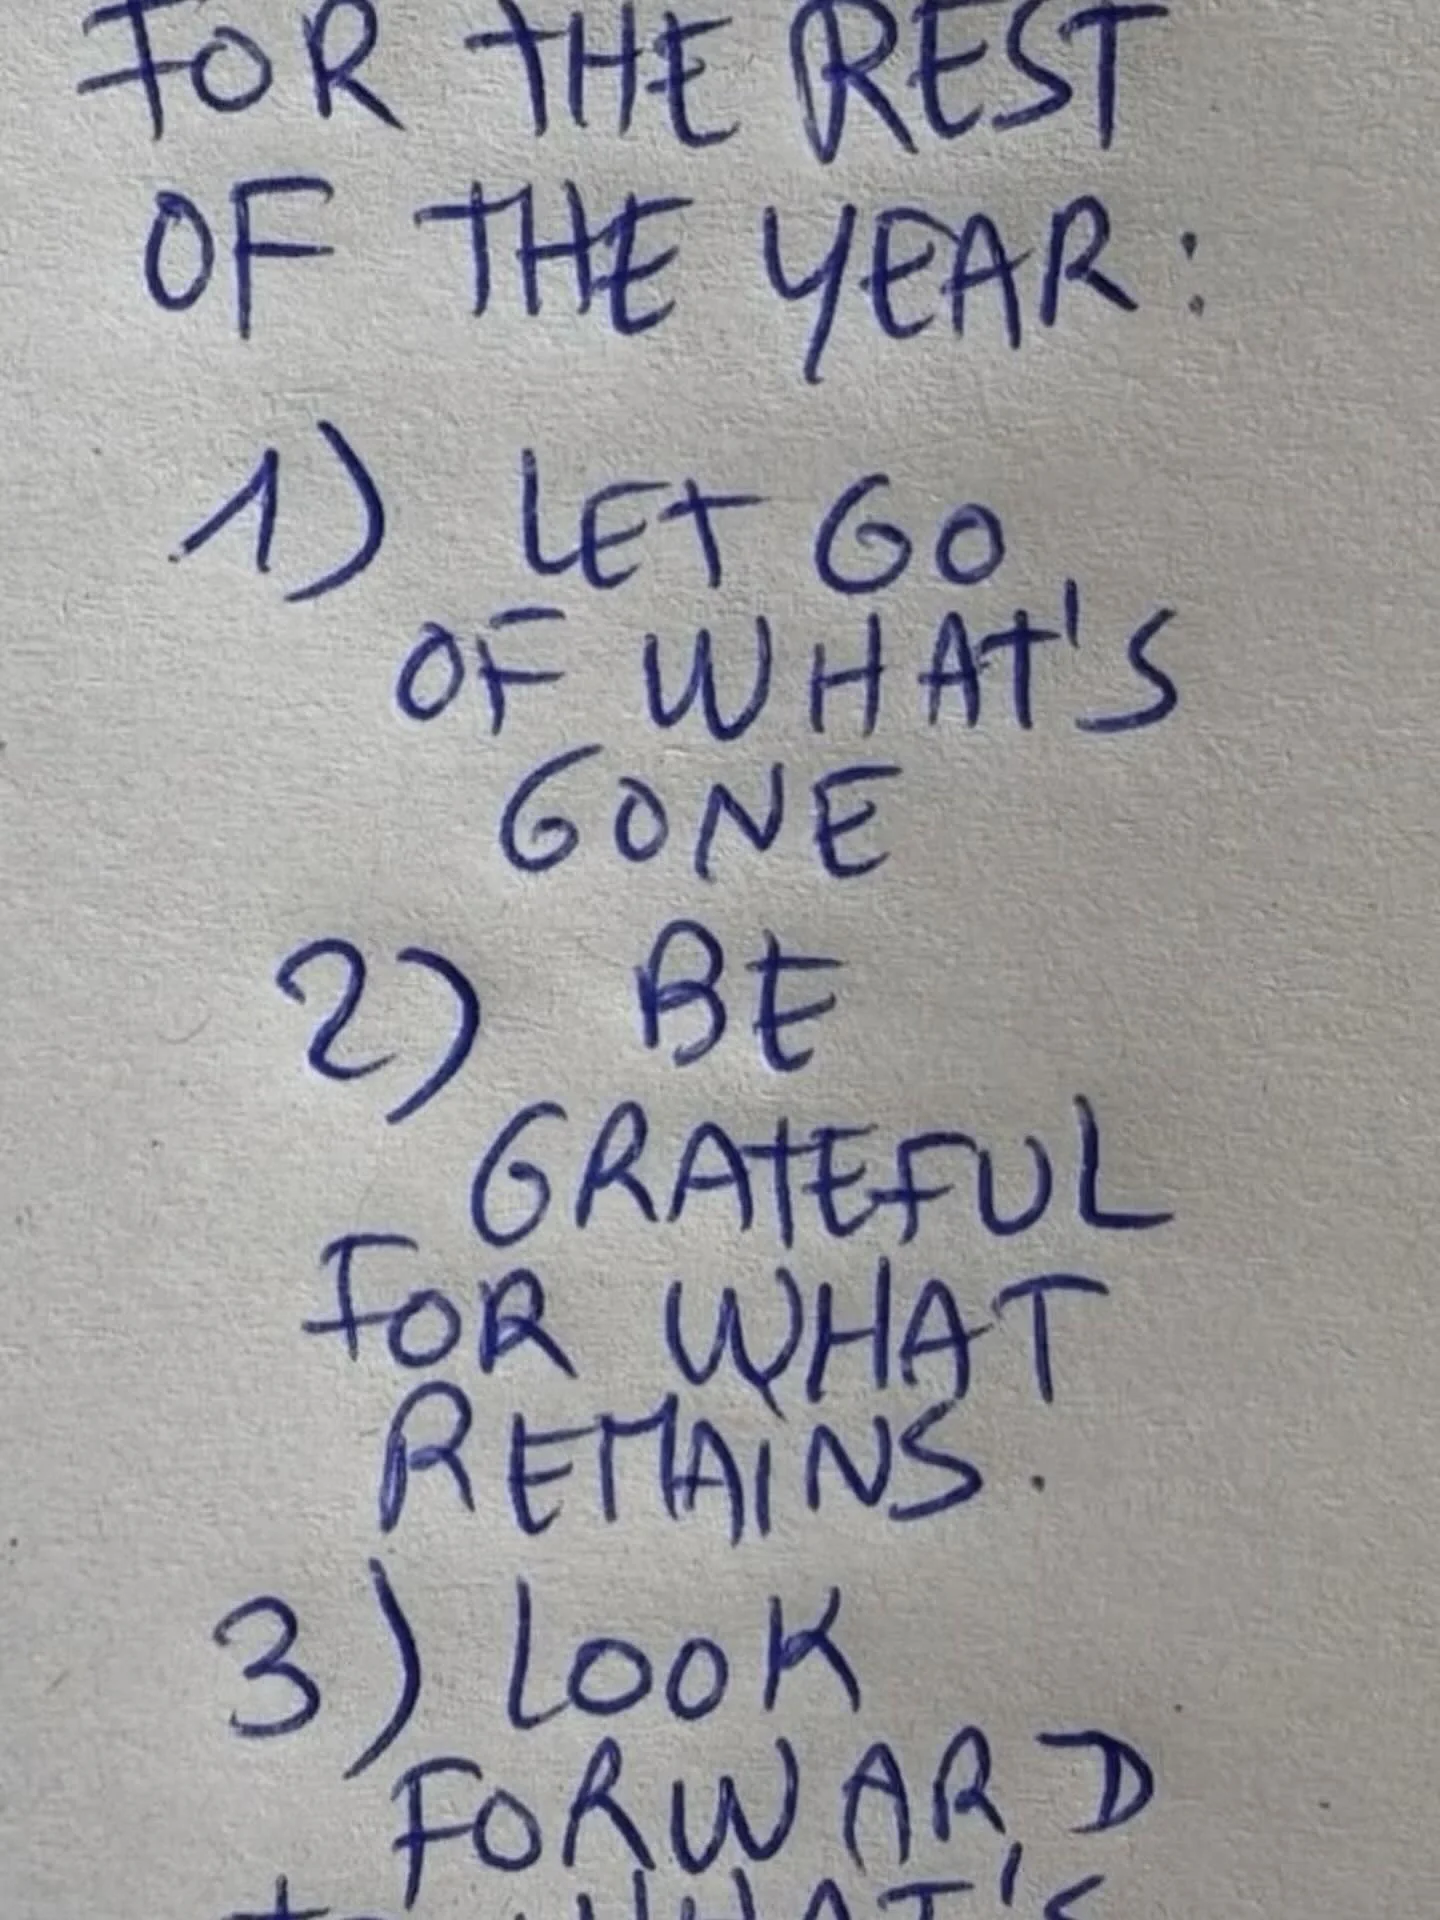 FOR THE REST
OF THE YEAR:
1) LET GO
OF WHAT'S
GONE
2) BE
GRATEFUL
FOR WHAT
REMAINS.
3) LOOK
FORWARD
to WHAT'S